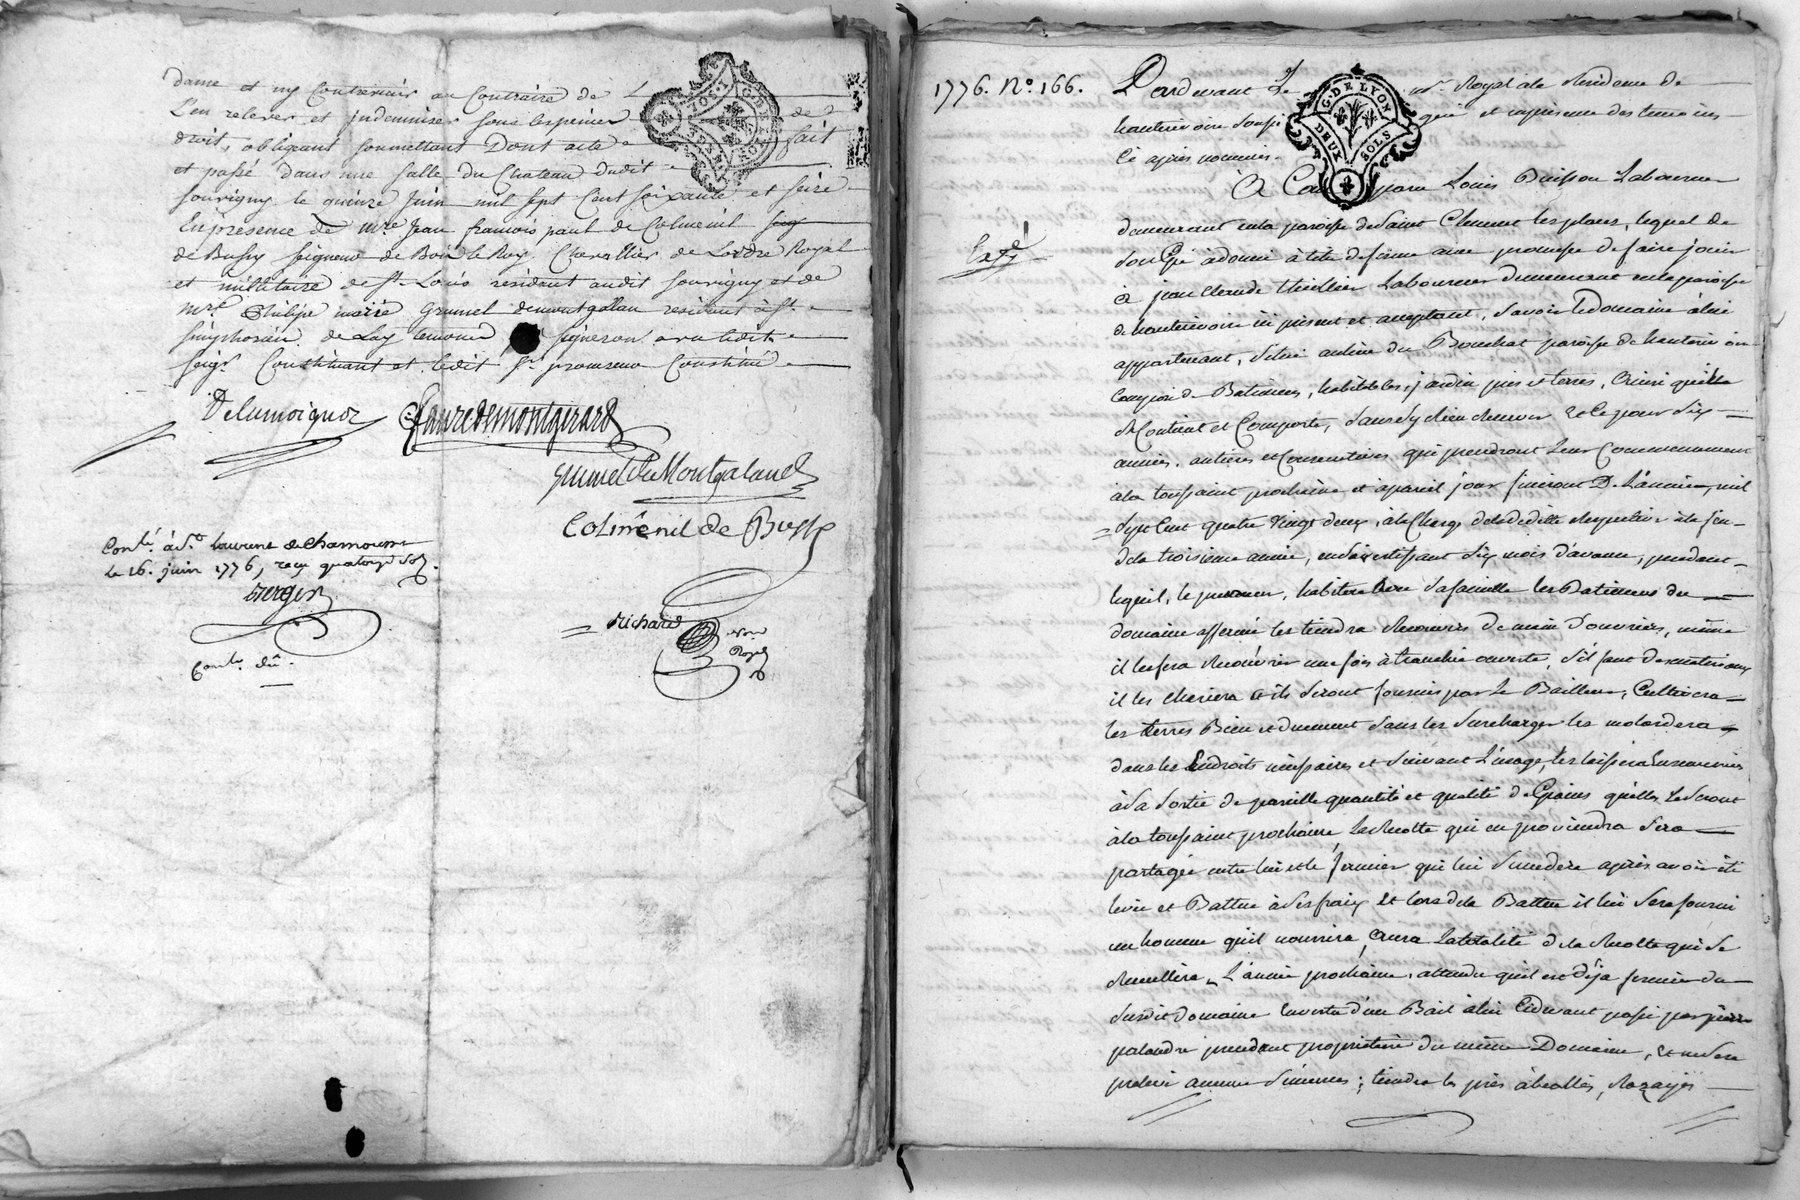 dame et ny Contrevenir au Contraire de L
L'en relever et indemniser sous les peines de
droit, obligeant soumettant Dont acte fait
et passé dans une salle du Chateau dudit
souvigny le quinze Juin mil sept Cent soixante et seize
En presence de mre Jean francois paul de Colmenil
de Bussy seigneur de Bois le Roy, Chevallier de Lordre Royal
et millitaire de st Louis résidant audit souvigny et de
mre Philipe marie Grumel demontgallan residant à st
simphorien de Lay temoins signeront avec ledit
seigr Constituant et ledit sr procureur Constitué
Delamoignon faure demontgirard
grumel de Montgaland
Colmênil de Bussy
Conlé à st Laurent de Chamousset
le 26. juin 1776, reçu quatorze sols.
Berger
Richard
nore
Royal
Conle dû.
G. DE LYON
DEUX SOLS
1776. No. 166.
Pardevant Le Royal ala Residence de
hauterivoire soussi gné et en presence des temoins
Cy après nommés.
Exté
A Comparu Louis Buisson Laboureur
demeurant enla paroisse de Saint Clement les places, lequel de
Son gré à donné à titre de ferme avec promesse de faire jouir
à jean Claude thiollier Laboureur demeurant enla paroisse
de hauterivoire ici present et acceptant, Savoir le domaine àlui
appartenant, Situé aulieu du Bouchat paroisse de hauterivoire
Composé de Batiments, habitables, jardin, prés et terres, Ainsi quil se
Contient et Comporte, Sans y rien reserver et ce pour Six
années, entières et Consecutives qui prendront Leur Commencement
àla toussaint prochaine et à pareil jour finiront De L'année mil
Sept Cent quatre vingt deux, àla Charge de la dedite respective àla fin
de la troisieme année, en s'avertissant Six mois d'avance, pendant
lequel, le preneur, habitera avec sa famille les Batiments du
domaine affermé les tiendra recouverts de main d'ouvriers, même
il les fera recouvrir une fois à tranchée ouverte, s'il faut des materiaux
il les chariera et ils Seront fournis par Le Bailleur, Cultivera
les terres Bien et duement Sans les Surcharger les molardera
dans les Endroits necessaires et Suivant L'usage, les laissera Ensemencés
à Sa Sortie de pareille quantité et qualité de Grains quelles Le Seront
àla toussaint prochaine, La Recolte qui en proviendra Sera
partagée entre lui et le fermier qui lui Succedera après avoir été
levée et Battue à Ses fraix et lors de la Batture il lui Sera fourni
un homme qu'il nourrira, Aura La totalité de la Recolte qui Se
Recuillira L'année prochaine, attendu quil est deja fermier du
Susdit Domaine En vertu d'un Bail àlui Cidevant passé par pierre
palandre precedant proprietaire du même Domaine, et ne Sera
prelevé aucune Semence; tiendra les prés à beallés, Razayés